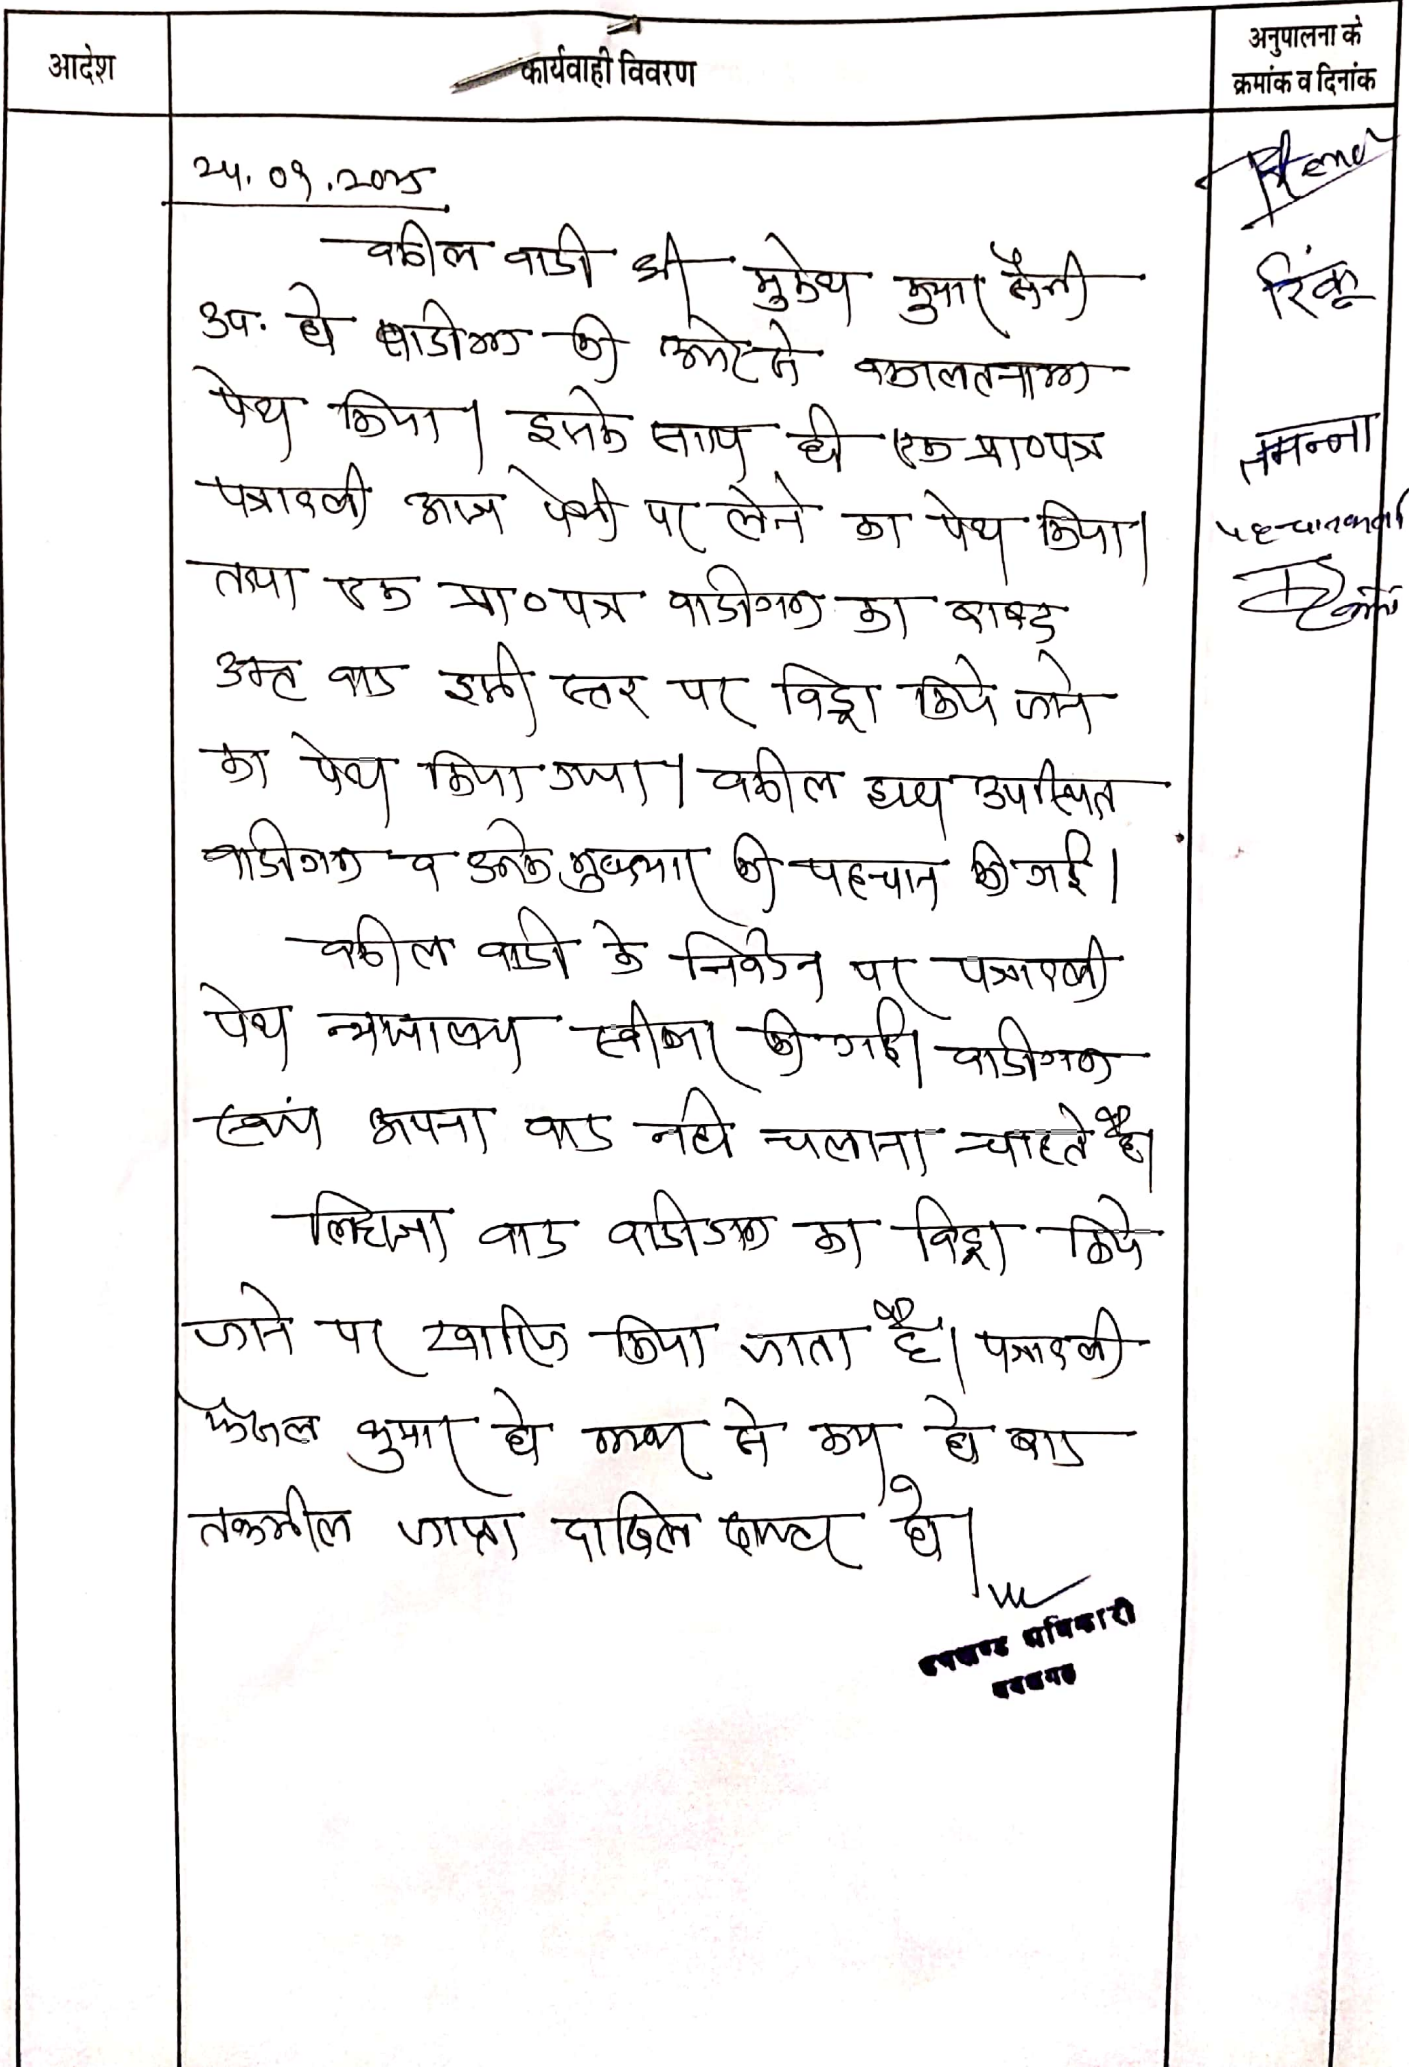 आदेश
कार्यवाही विवरण
अनुपालना के
क्रमांक व दिनांक
२५.०९.२०२५
वकील वादी श्री मुकेश कुमार सैनी
उप. हो वादीगण की ओर से वकालतनामा
पेश किया। इसके साथ ही एक प्रा०पत्र
पत्रावली आज पेशी पर लेने का पेश किया।
तथा एक प्रा०पत्र वादीगण का बाबद
उक्त वाद इसी स्तर पर विड्रा किये जाने
का पेश किया गया। वकील द्वारा उपस्थित
वादीगण व उनके मुख्त्यार की पहचान की गई।
वकील वादी के निवेदन पर पत्रावली
पेश न्यायालय स्वीकार की गई। वादीगण
स्वयं अपना वाद नही चलाना चाहते है।
लिहाजा वाद वादीगण का विड्रा किये
जाने पर खारिज किया जाता है। पत्रावली
फैसल शुमार हो नम्बर से कम हो बाद
तकमील जाप्ता दाखिल दफ्तर हो।
उपखण्ड अधिकारी
रिंकू
तमन्ना
पहचानकर्ता